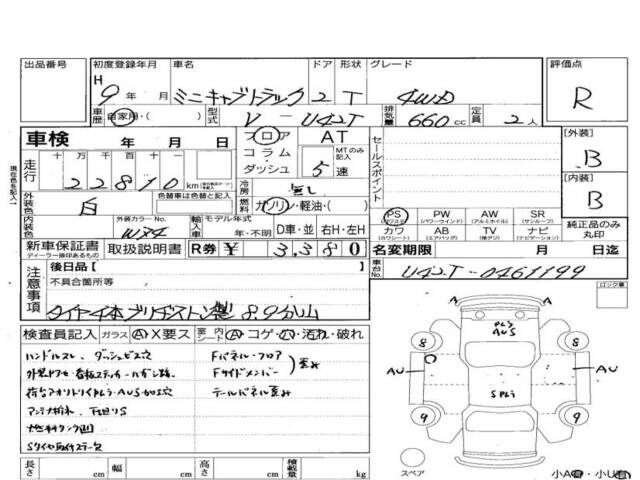 出品番号 初度登録年月 車名 ドア 形状 グレード 評価点
H 9 年 月 ミニキャブトラック 2 T 4WD R
車歴 自家用・( ) 型式 V-U42T 排気量 660 cc 定員 2 人
車検 年 月 日 フロア コラム・ダッシュ AT MTのみ記入 5 速 セールスポイント
[外装] B
走行 十 万 千 百 十 一
2 2 8 1 0 km
冷房 無し
[内装] B
外装色 白 色替車は色替前の色 燃料 ガソリン・軽油・( )
PS (パワステ) PW (パワーウインド) AW (アルミホイル) SR (サンルーフ) 純正品のみ丸印
内装色 外装カラーNo. W24 輸入車 モデル年式 年・不明 D車・並 右H・左H
カワ (カワシート) AB (エアバッグ) TV (純デジ) ナビ (ナビゲーション)
新車保証書 ディーラー捺印あるもの 取扱説明書 R券 ¥ 3,380 名変期限 年 月 日迄
注意事項 後日品[ ] 車台No. U42T-0461199
不具合箇所等 ロック車
タイヤ4本ブリヂストン製 8.9分山
検査員記入 ガラス A・X要ス 室内シート A・コゲ・穴・汚れ・破れ
ハンドルスレ、ダッシュビス穴 Fパネル・フロア
Fサイドメンバー 歪み
テールパネル歪み
アンテナ折れ、下廻りS
燃料タンク凹
Sタイヤ取付ステー欠
長さ cm 幅 cm 高さ cm 積載量 kg
A A
AUS
8 8
AU AU
9 9
スペア
小A・小U
現在色を記入